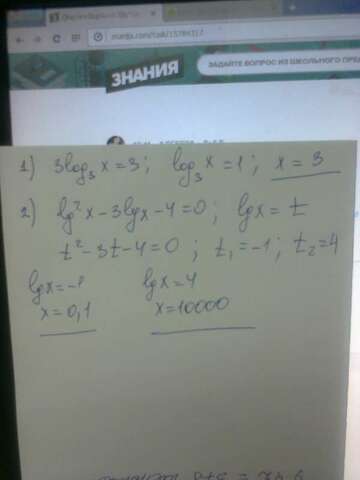 znanija.com/task/15784317
ЗНАНИЯ
ЗАДАЙТЕ ВОПРОС ИЗ ШКОЛЬНОГО ПРЕ
1) 3log₃x=3; log₃x=1; x=3
2) lg²x-3lgx-4=0; lgx=t
t²-3t-4=0; t₁=-1; t₂=4
lgx=-1 lgx=4
x=0,1 x=10000